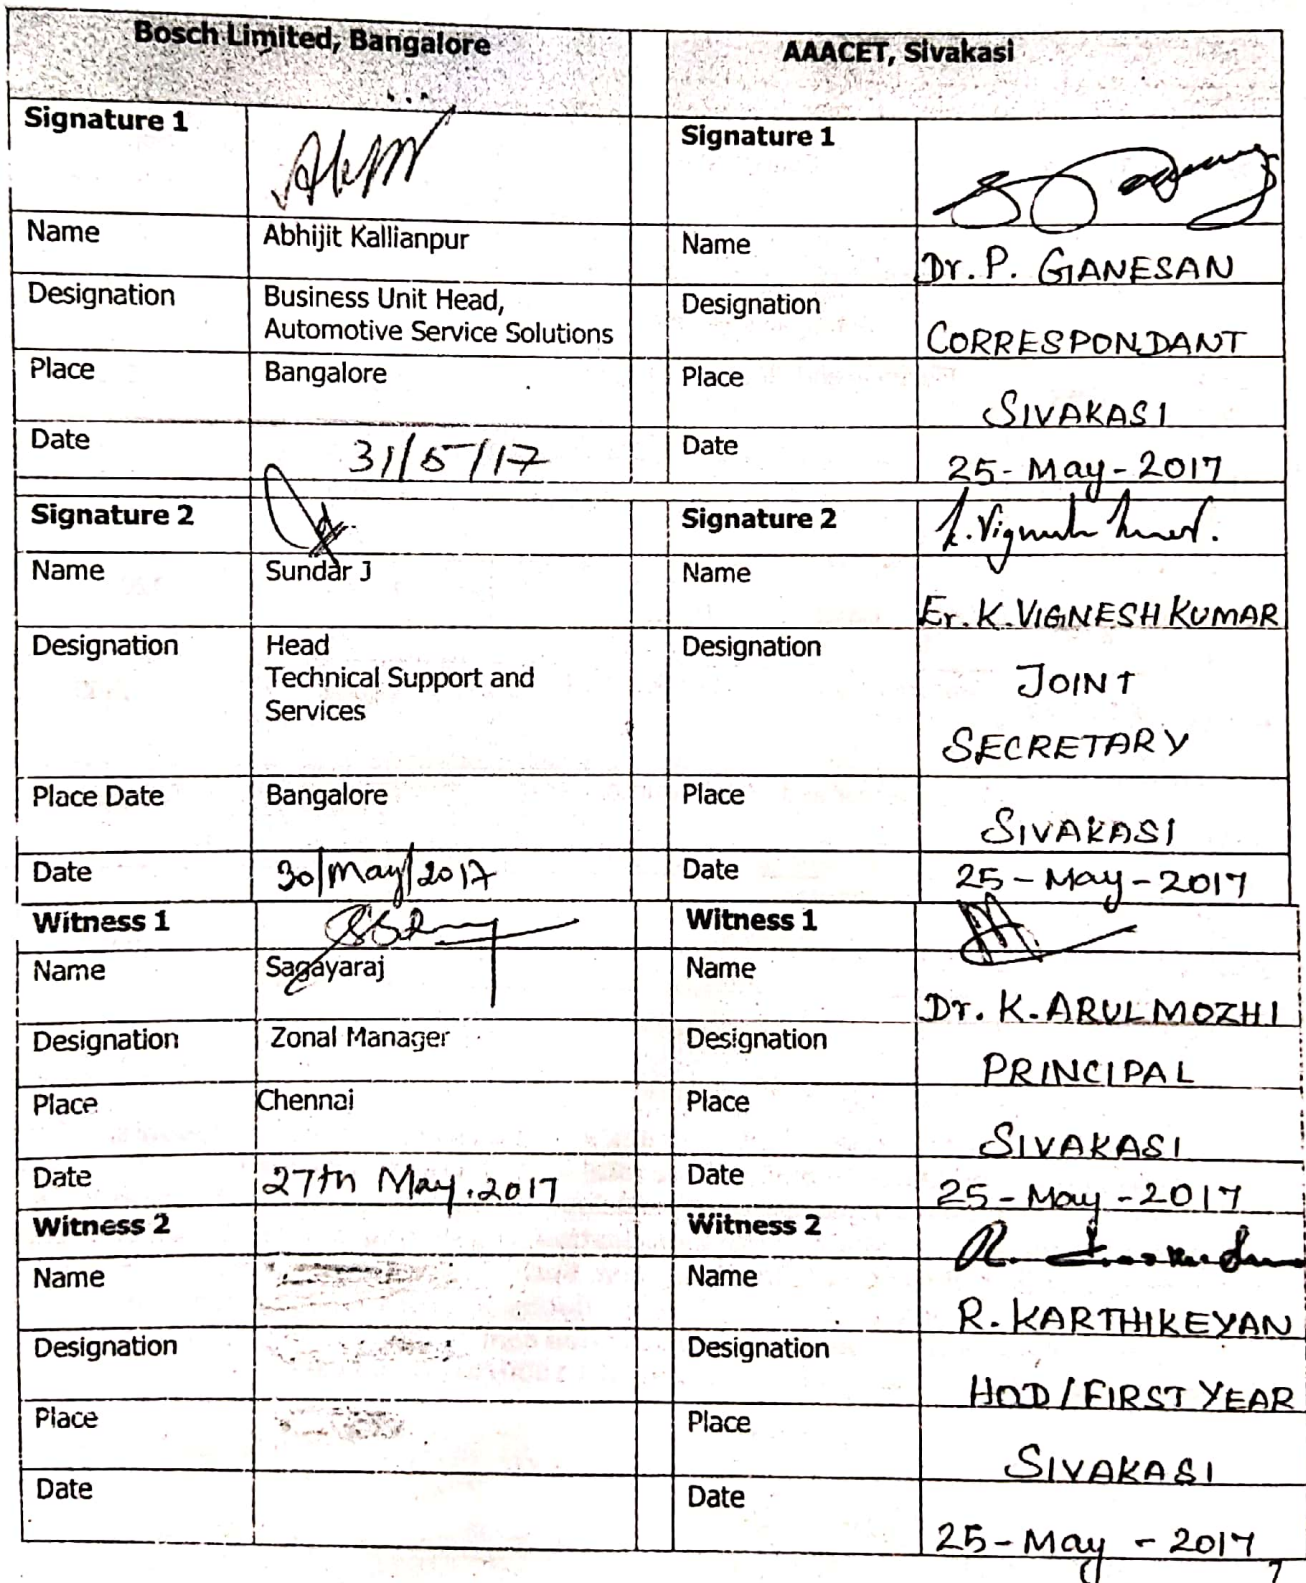 Bosch Limited, Bangalore
AAACET, Sivakasi
Signature 1
Signature 1
Name
Abhijit Kallianpur
Name
Dr. P. GANESAN
Designation
Business Unit Head,
Automotive Service Solutions
Designation
CORRESPONDANT
Place
Bangalore
Place
SIVAKASI
Date
31/5/17
Date
25-May-2017
Signature 2
Signature 2
Name
Sundar J
Name
Er. K. VIGNESH KUMAR
Designation
Head
Technical Support and
Services
Designation
JOINT
SECRETARY
Place Date
Bangalore
Place
SIVAKASI
Date
30/May/2017
Date
25-May-2017
Witness 1
Witness 1
Name
Sagayaraj
Name
Dr. K. ARULMOZHI
Designation
Zonal Manager
Designation
PRINCIPAL
Place
Chennai
Place
SIVAKASI
Date
27th May.2017
Date
25-May-2017
Witness 2
Witness 2
Name
Name
R. KARTHIKEYAN
Designation
Designation
HOD/FIRST YEAR
Place
Place
SIVAKASI
Date
Date
25-May-2017
7